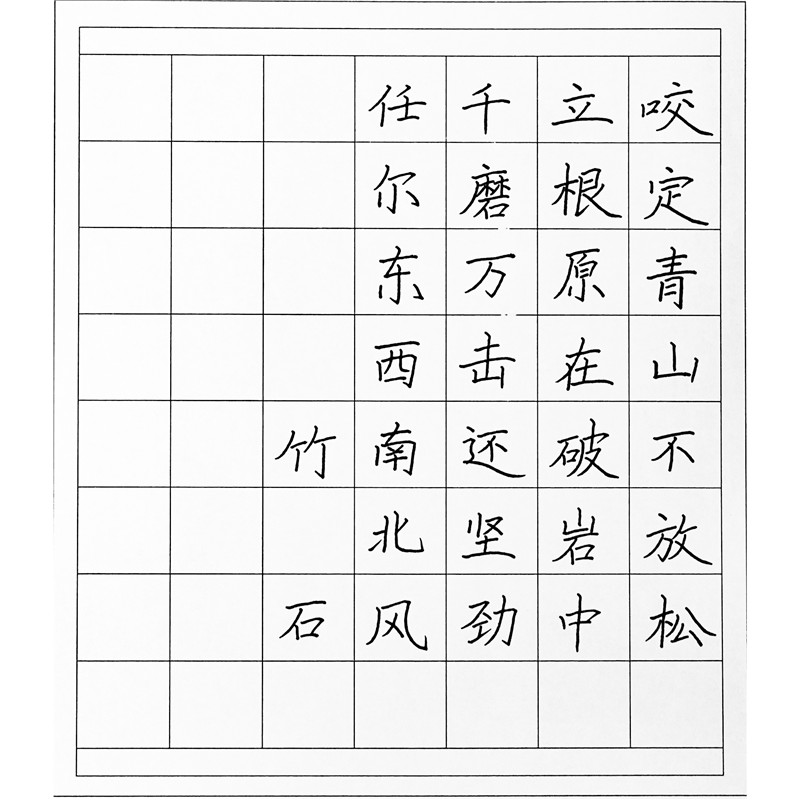 咬定青山不放松
立根原在破岩中
千磨万击还坚劲
任尔东西南北风
竹石